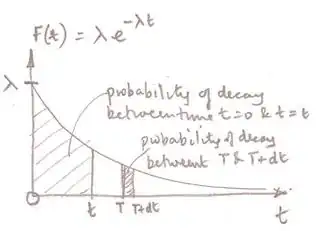 F(t) = λe^-λt
λ
probability of decay
between time t=0 & t=t
probability of decay
between T & T+dt
O
t
T
T+dt
t